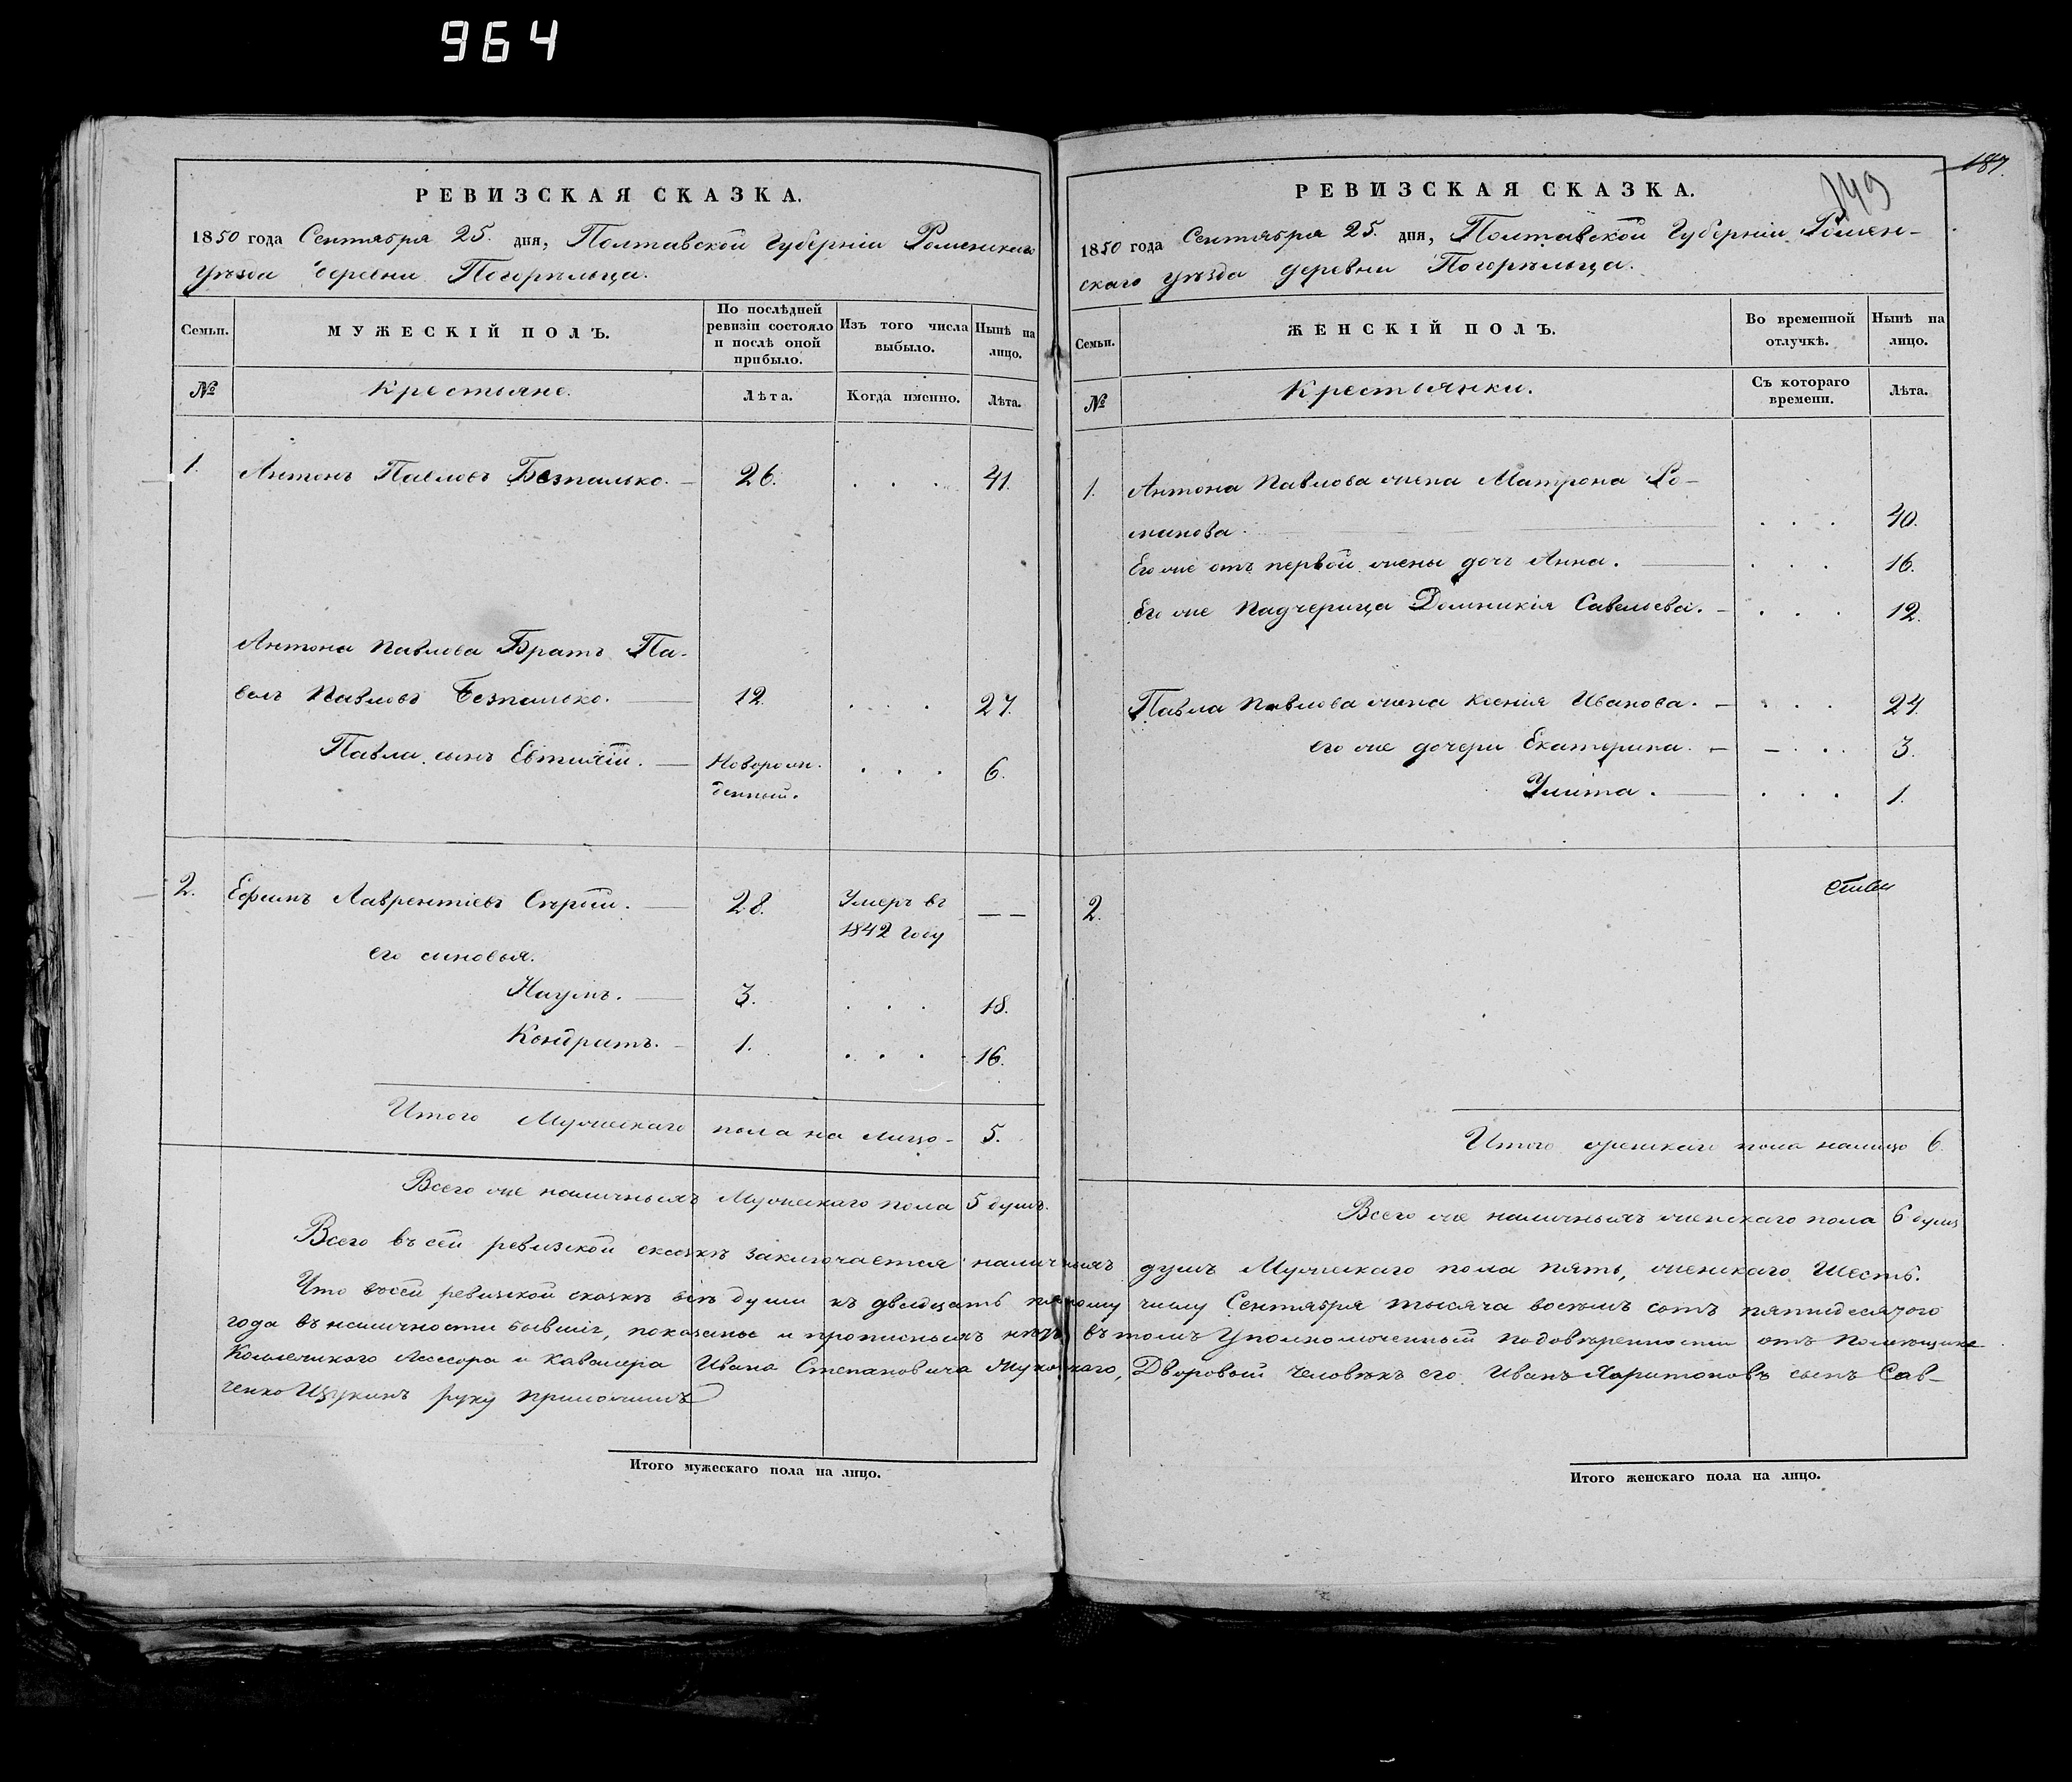 964
РЕВИЗСКАЯ СКАЗКА.
1850 года Сентября 25. дня, Полтавской Губерніи Роменскаго
уѣзда деревни Погорѣльца.
Семьи.
МУЖЕСКІЙ ПОЛЪ.
По послѣдней ревизіи состояло и послѣ оной прибыло.
Изъ того числа выбыло.
Нынѣ на лицо.
№
Крестьяне.
Лѣта.
Когда именно.
Лѣта.
1. Антонъ Павловъ Безпалько. 26. . . . 41.
Антона Павлова Братъ Па-
велъ Павловъ Безпалько. 12. . . . 27.
Павла сынъ Евтихій. Новорож- . . . 6.
денный.
2. Ефимъ Лаврентіевъ Сѣрый. 28. Умеръ въ — —
1842 году
его сыновья.
Наумъ. 3. . . . 18.
Кондратъ. 1. . . . 16.
Итого Мужескаго пола на лицо - 5.
Всего же наличныхъ Мужескаго пола 5 душъ.
187.
149
РЕВИЗСКАЯ СКАЗКА.
1850 года Сентября 25. дня, Полтавской Губерніи Ромен-
скаго уѣзда деревни Погорѣльца.
Семьи.
ЖЕНСКІЙ ПОЛЪ.
Во временной отлучкѣ.
Нынѣ на лицо.
№
Крестьянки.
Съ котораго времени.
Лѣта.
1. Антона Павлова жена Матрона Ро-
манова. . . . 40.
Его же отъ первой жены дочь Анна. . . . 16.
Его же Падчерица Домникія Савельева. . . . 12.
Павла Павлова жена Ксенія Иванова. . . . 24.
его же дочери Екатерина. . . 3.
Улита. . . . 1.
2.
Итого женскаго пола налицо 6.
Всего же наличныхъ женскаго пола 6 душъ
Всего въ сей ревизской сказкѣ заключается наличныхъ душъ Мужескаго пола пять, женскаго Шесть.
Что въ сей ревизской сказкѣ всѣ души къ двадцать пятому числу Сентября тысяча восемь сотъ пятидесятого
года въ наличности бывшіе, показаны и прописныхъ нѣтъ, въ томъ Уполномоченный по довѣренности отъ Помѣщика
Коллежскаго Ассесора и Кавалера Ивана Степановича Дворовый человѣкъ его Иванъ Харитоновъ сынъ Сав-
ченко руку приложилъ
Итого мужескаго пола на лицо.
Итого женскаго пола на лицо.